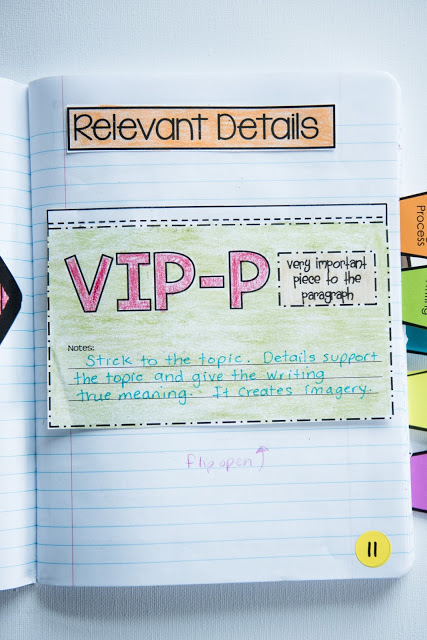 Relevant Details
Process
VIP-P
very important
piece to the
paragraph
Notes:
Stick to the topic. Details support
the topic and give the writing
true meaning. It creates imagery.
flip open
11